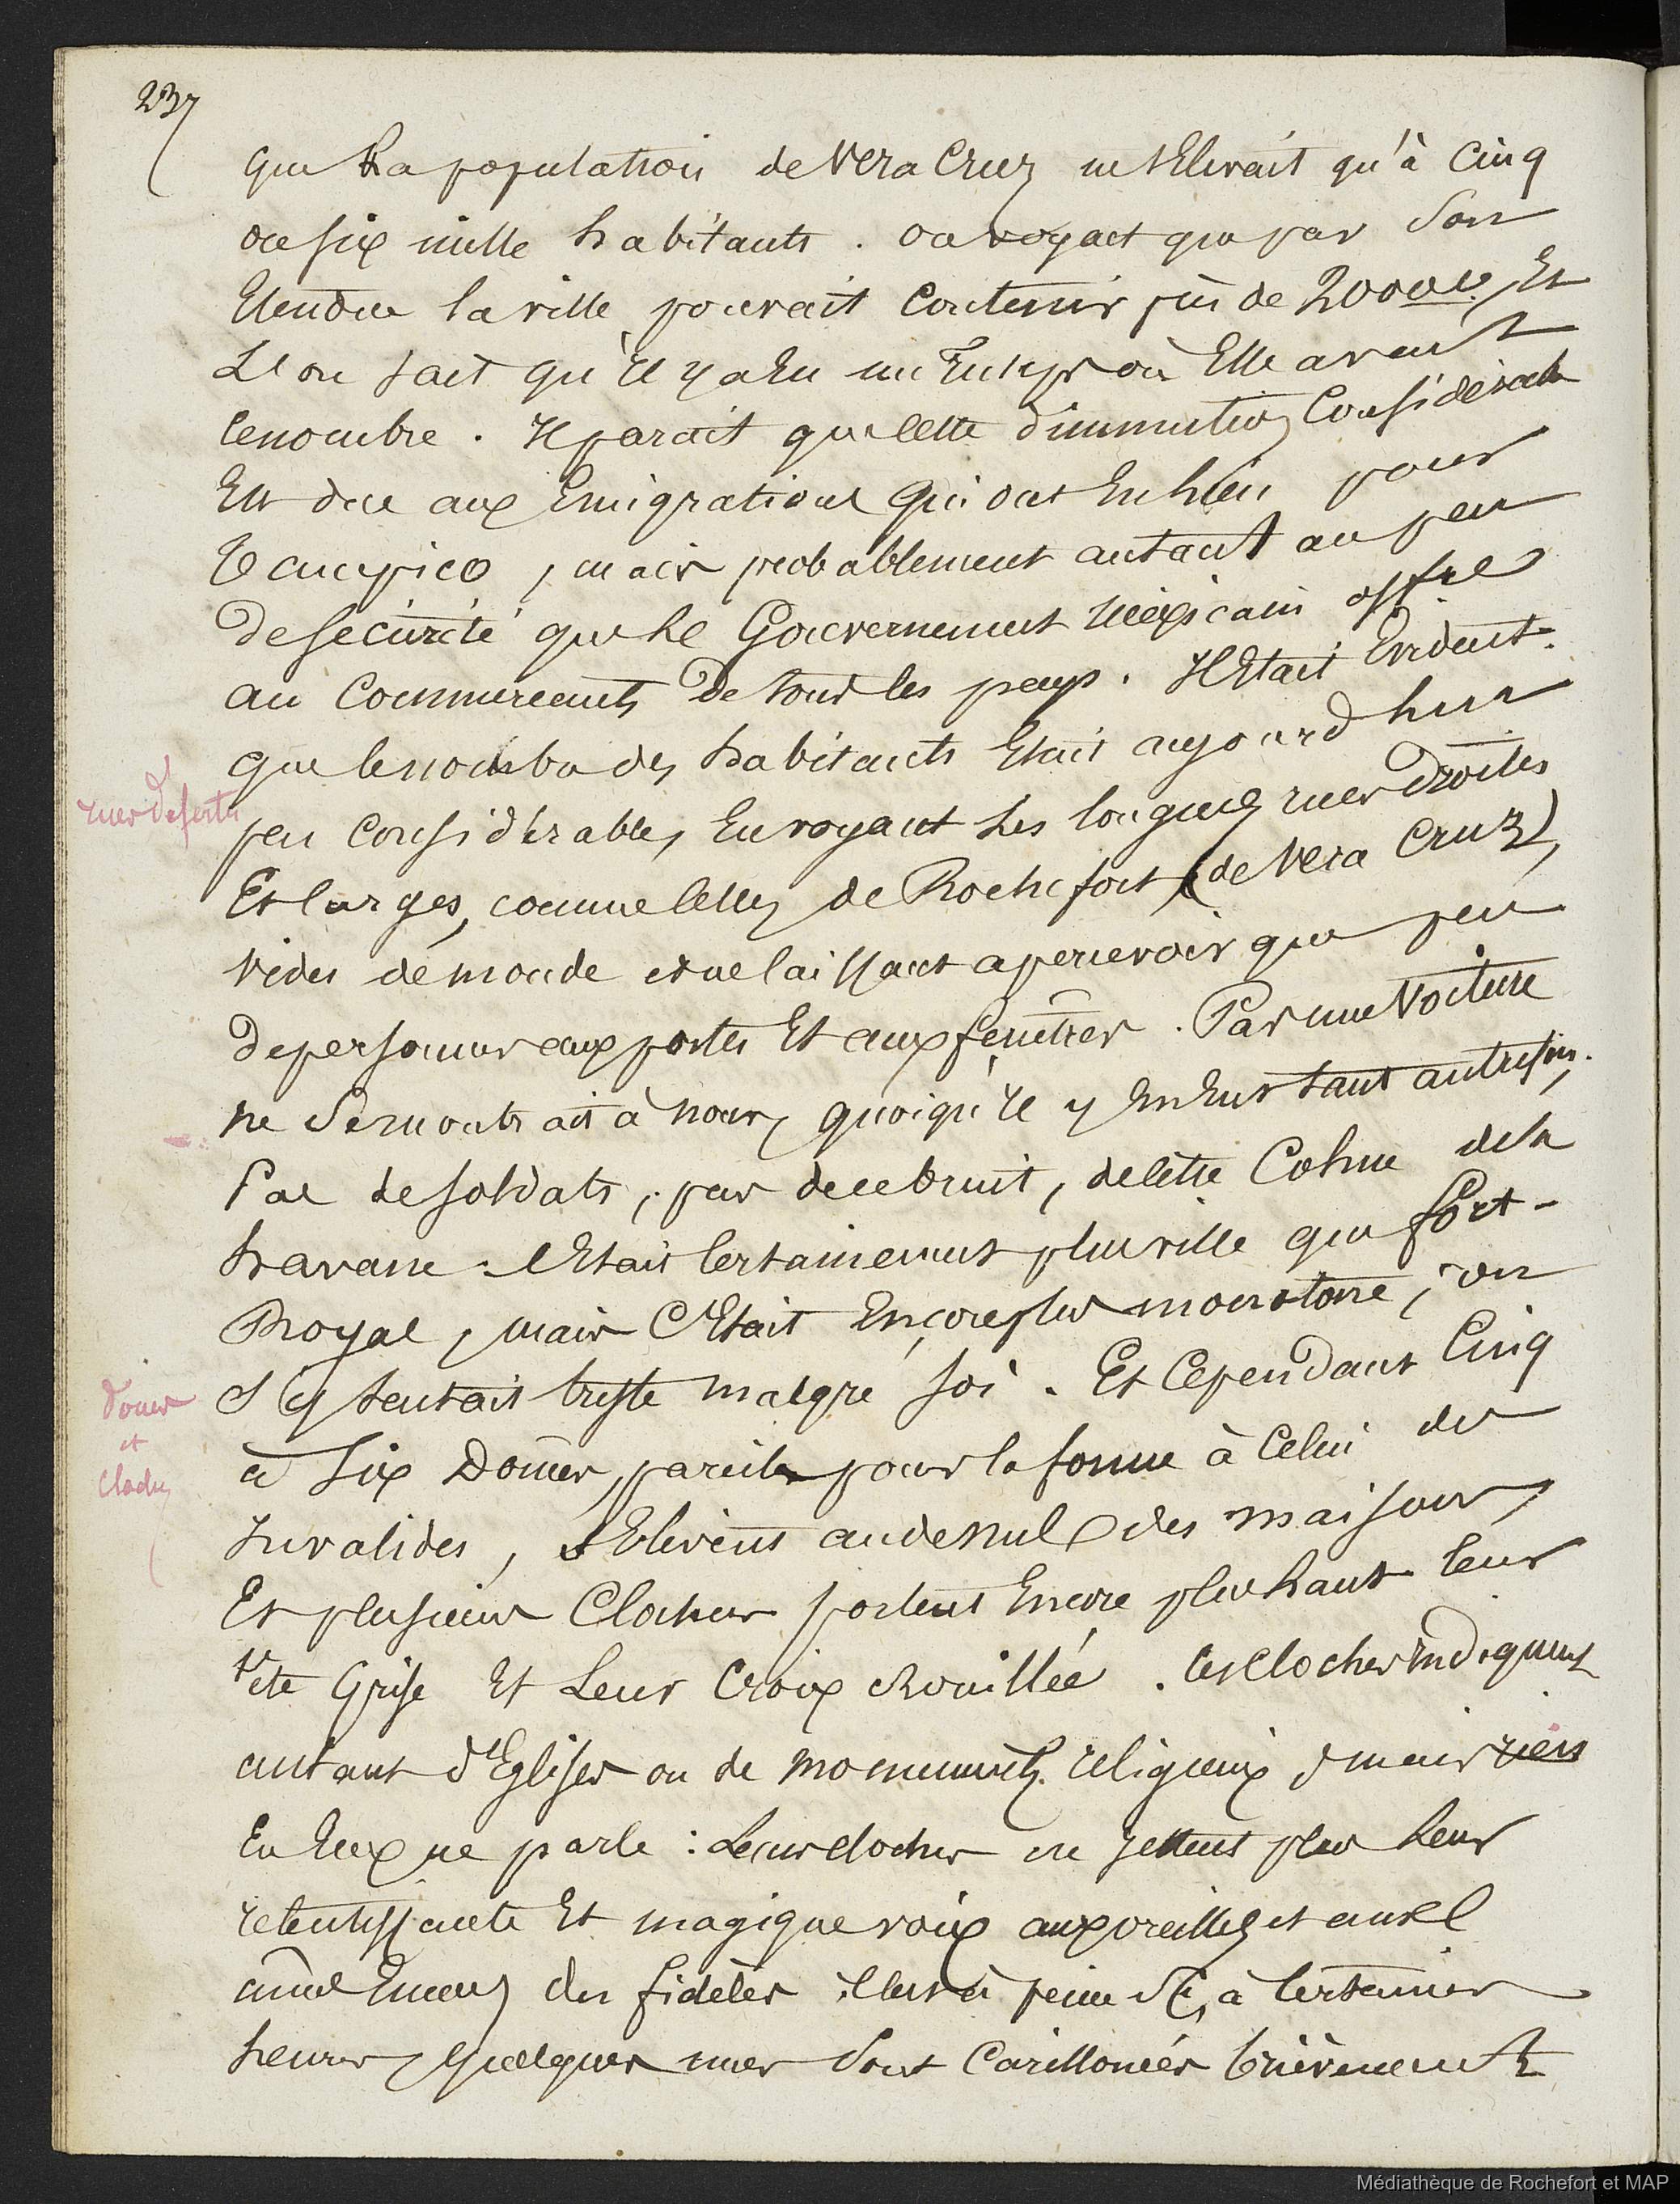 237
que la population de Vera Cruz ne s'Elevait qu'à Cinq
ou six mille habitants. on voyait que par Son
Etendue la ville pouvait Contenir près de 20000. Et
L'on sait qu'Il y a Eu un Temps où Elle avait
ce nombre. Il parait que cette diminution Considérable
Est due aux Emigrations qui ont Eu lieu pour
Tampico, mais probablement autant au peu
de sécurité que Le Gouvernement Mexicain offre
au Commerçants De tous les pays. Il Etait Evident
que le nombre des habitants Etait aujourd'hui
rues desertes
peu Considérable, En voyant Les longues rues Droites
Et larges, comme celles de Rochefort (de Vera Cruz),
vides de monde et ne laissant apercevoir que peu
De personnes aux portes Et aux fenêtres. Pas une Voiture
ne Se montrait à nous, quoiqu'Il y En Eut tant autrefois.
Pas de soldats, pas de ce bruit, de cette Cohue de la
havane. C'Etait Certainement plus ville que fort-
Royal, mais C'Etait Encore plus monotone; on
S'y sentait triste malgré soi. Et Cependant Cinq
Domes
et
Clochers
à Six Dômes, pareils pour la forme à Celui des
Invalides, s'Elèvent au dessus des maisons,
Et plusieurs Clochers portent Encore plus haut leur
tête Grise Et Leur Croix Rouillée. Ces Clochers Indiquent
autant d'Eglises ou de Monuments religieux, mais rien
En Eux ne parle : Leurs cloches ne jettent plus Leur
retentissante Et magique voix aux oreilles et aux
âmes des fidèles. C'est à peine Si, à Certaines
heures, quelques unes Sont Carillonées brièvement
Médiathèque de Rochefort et MAP